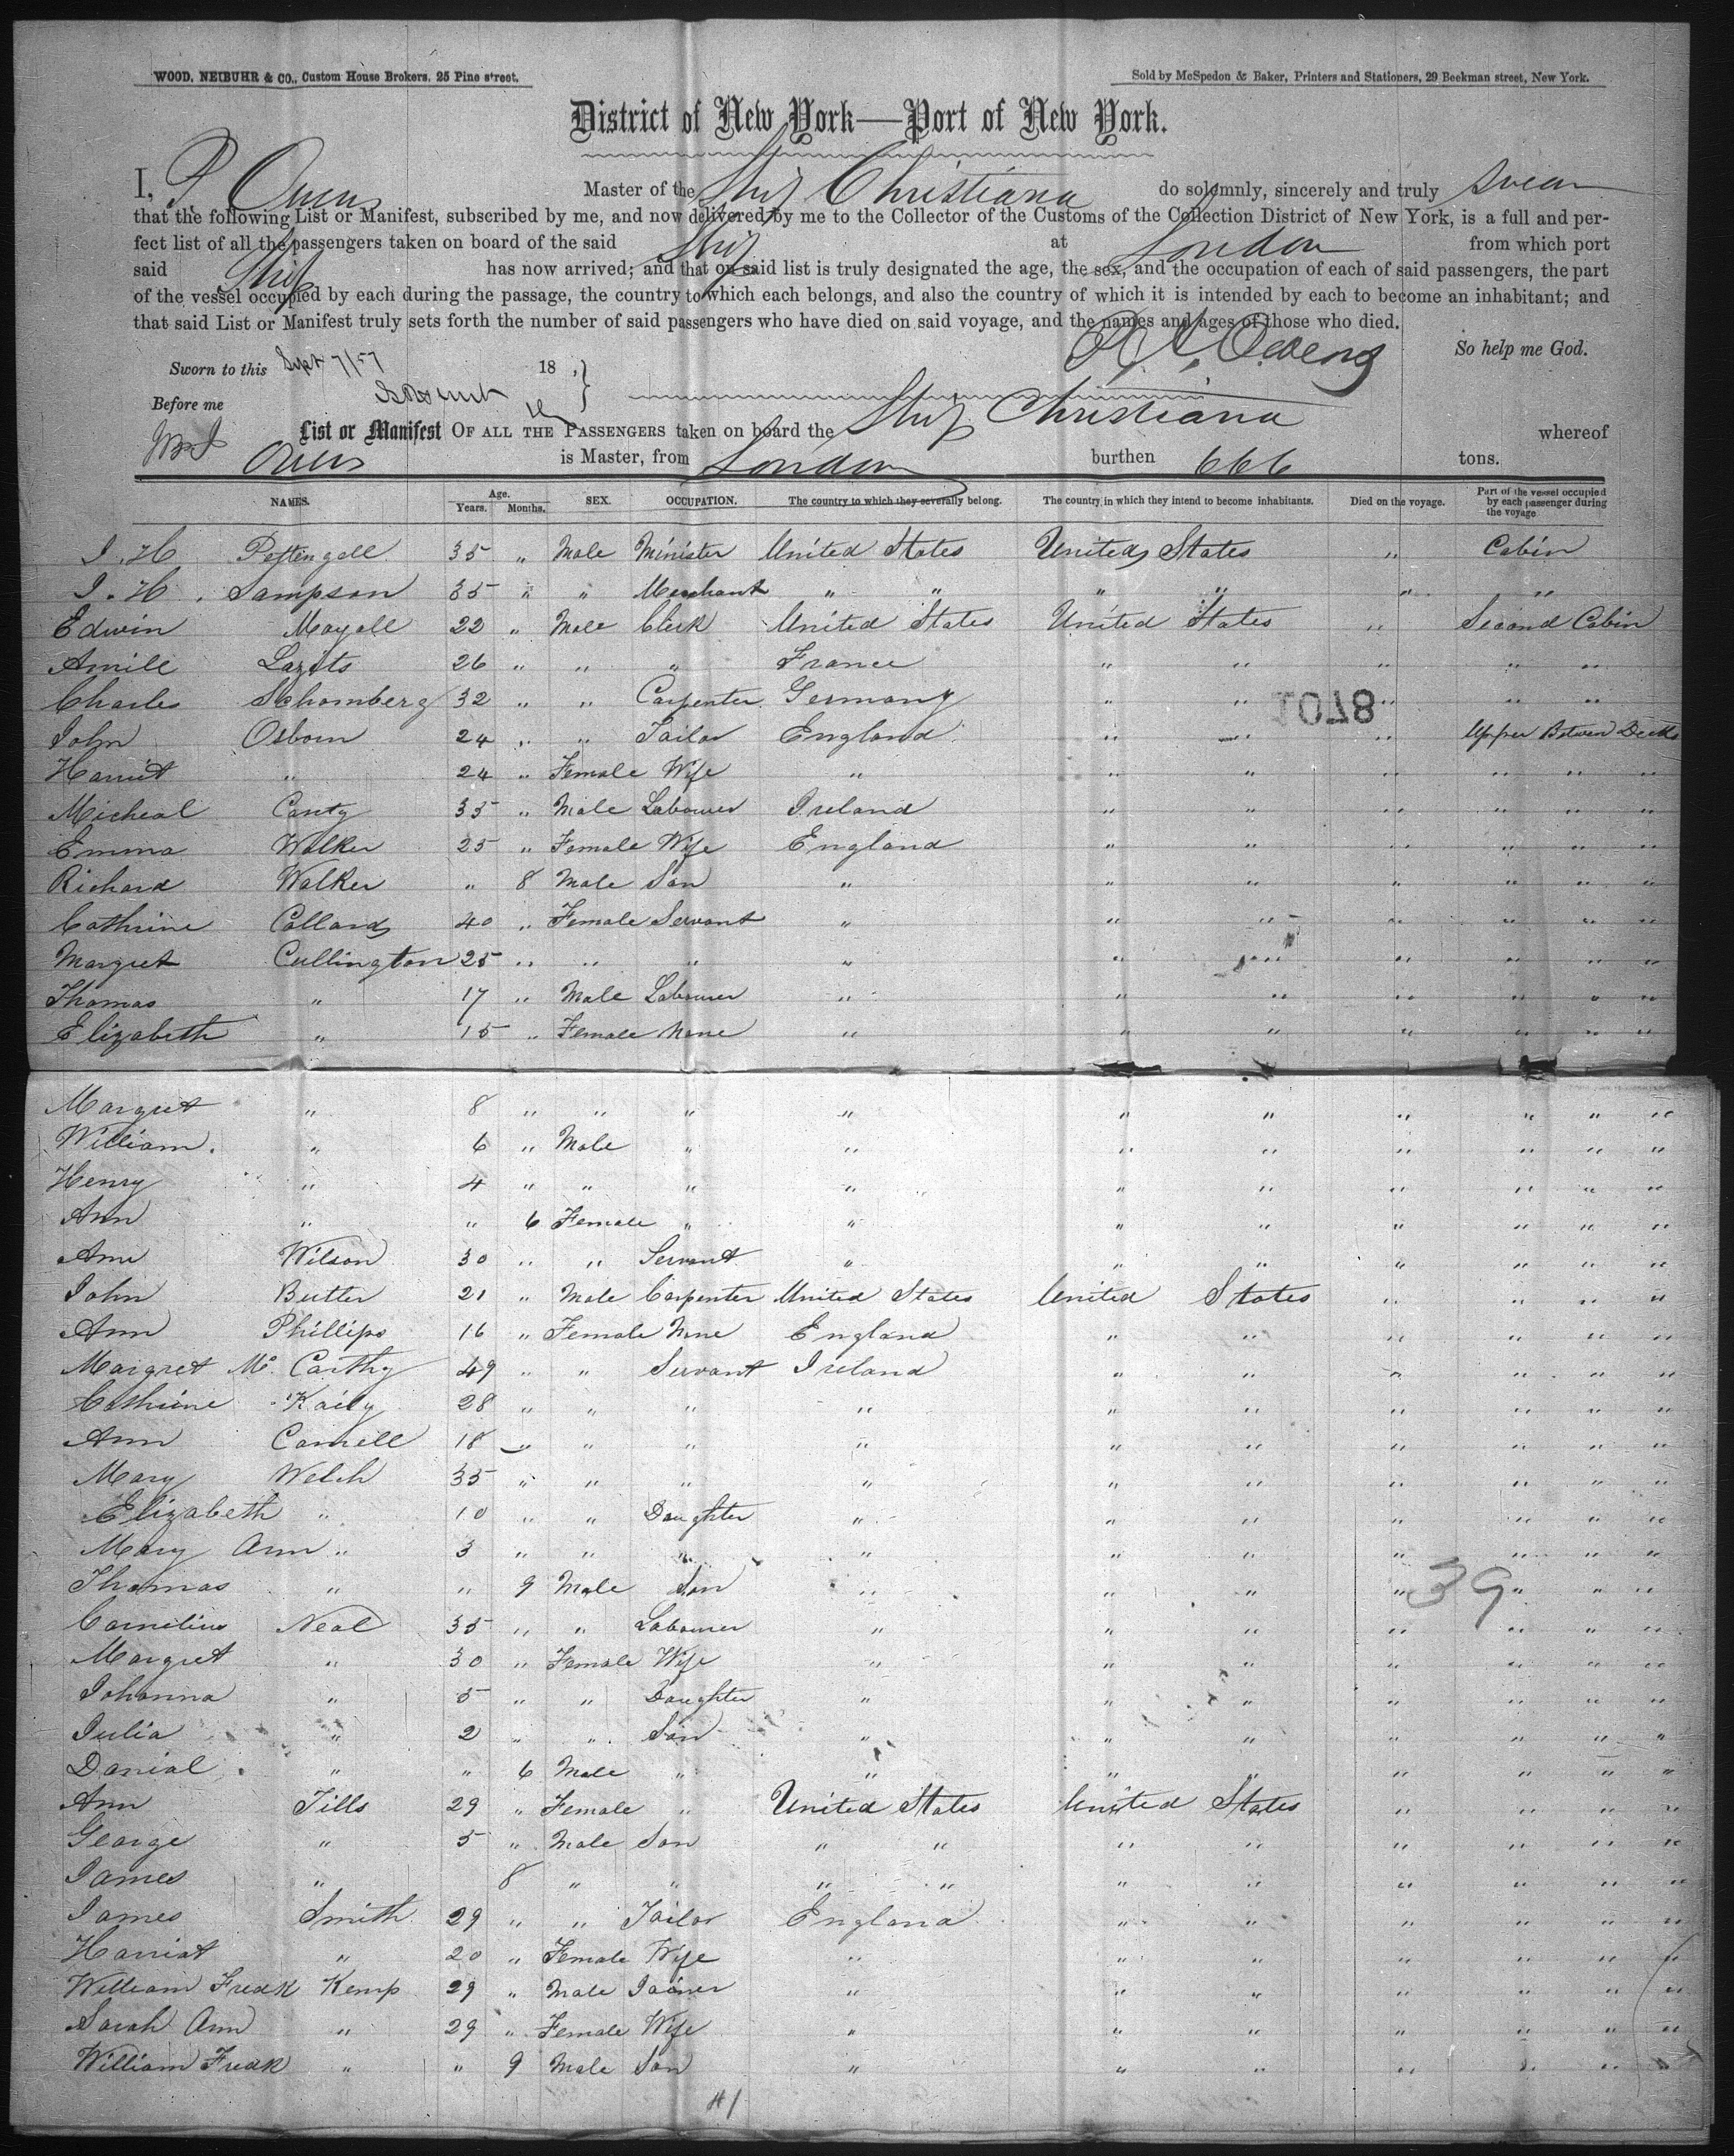 WOOD, NEIBUHR & CO., Custom House Brokers, 25 Pine street. Sold by McSpedon & Baker, Printers and Stationers, 29 Beekman street, New York.
District of New York—Port of New York.
I, P. Owens Master of the Ship Christiana do solemnly, sincerely and truly swear
that the following List or Manifest, subscribed by me, and now delivered by me to the Collector of the Customs of the Collection District of New York, is a full and per-
fect list of all the passengers taken on board of the said Ship at London from which port
said Ship has now arrived; and that on said list is truly designated the age, the sex, and the occupation of each of said passengers, the part
of the vessel occupied by each during the passage, the country to which each belongs, and also the country of which it is intended by each to become an inhabitant; and
that said List or Manifest truly sets forth the number of said passengers who have died on said voyage, and the names and ages of those who died.
Owens So help me God.
Sworn to this Sept 7/57 18
Before me
List or Manifest OF ALL THE PASSENGERS taken on board the Ship Christiana whereof
Owens is Master, from London burthen 666 tons.
NAMES. Age. Years. Months. SEX. OCCUPATION. The country to which they severally belong. The country in which they intend to become inhabitants. Died on the voyage. Part of the vessel occupied by each passenger during the voyage
I. H Pettengell 35 " Male Minister United States United States " Cabin
I. H. Sampson 35 " " Merchant " " " " " "
Edwin Mayall 22 " Male Clerk United States United States " Second Cabin
Amile Lazets 26 " " " France " " " " "
Charles Schomberg 32 " " Carpenter Germany " " " " "
1078
John Osborn 24 " " Tailor England " " " Upper Between Decks
Harriet " 24 " Female Wife " " " " " " "
Micheal Canty 35 " Male Labourer Ireland " " " " " "
Emma Walker 25 " Female Wife England " " " " " "
Richard Walker " 8 Male Son " " " " " " "
Cathrine Collard 40 " Female Servant " " " " " " "
Margret Cullington 25 " " " " " " " " " "
Thomas " 17 " Male Labourer " " " " " " "
Elizabeth " 15 " Female None " " " " " " "
Margret " 8 " " " " " " " " " "
William. " 6 " Male " " " " " " " "
Henry " 4 " " " " " " " " " "
Ann " " 6 Female " " " " " " " "
Ann Wilson 30 " " Servant " " " " " " "
John Butler 21 " Male Carpenter United States United States " " " "
Ann Phillips 16 " Female None England " " " " " "
Margret Mc Carthy 49 " " Servant Ireland " " " " " "
Cathrine Kaily 28 " " " " " " " " " "
Ann Connell 18 " " " " " " " " " "
Mary Welch 35 " " " " " " " " " "
Elizabeth " 10 " " Daughter " " " " " " "
Mary Ann " 3 " " " " " " " " " "
Thomas " " 9 Male Son " " " " " " "
39
Cornelius Neal 35 " " Labourer " " " " " " "
Margret " 30 " Female Wife " " " " " " "
Johanna " 5 " " Daughter " " " " " " "
Julia " 2 " " Son " " " " " " "
Danial " " 6 Male " " " " " " " "
Ann Tills 29 " Female " United States United States " " " "
George " 5 " Male Son " " " " " " " "
James " 8 " " " " " " " " " "
James Smith 29 " " Tailor England " " " " " "
Harriat " 20 " Female Wife " " " " " " "
William Fredk Kemp 29 " Male Joiner " " " " " " "
Sarah Ann " 29 " Female Wife " " " " " " "
William Fredk " " 9 Male Son " " " " " " "
41